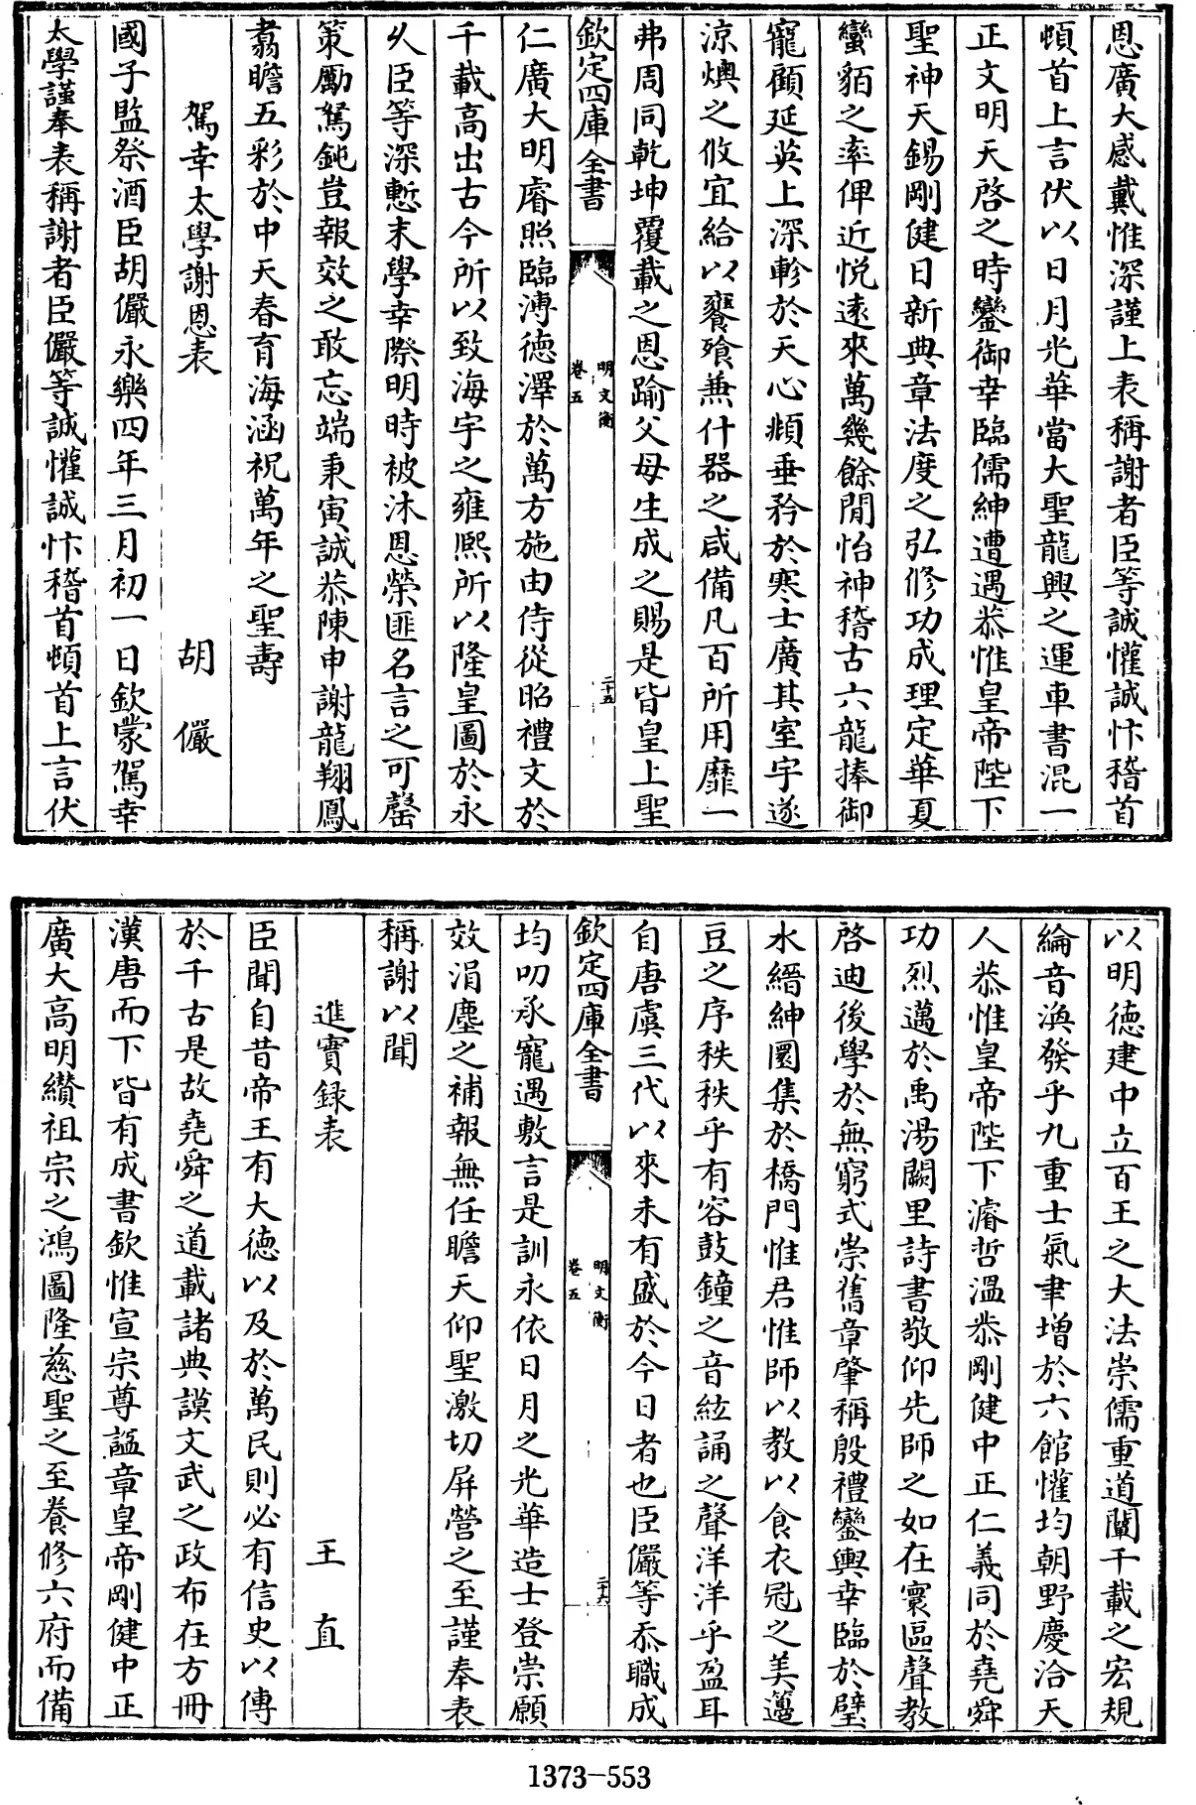 恩廣大感戴惟深謹上表稱謝者臣等誠懽誠忭稽首
頓首上言伏以日月光華當大聖龍興之運車書混一
正文明天啓之時鑾御幸臨儒紳遭遇恭惟皇帝陛下
聖神天錫剛健日新典章法度之弘修功成理定華夏
蠻貊之率俾近悦遠來萬幾餘閒怡神稽古六龍捧御
寵顧延英上深軫於天心頻垂矜於寒士廣其室宇遂
涼燠之攸宜給以饔飱兼什器之咸備凡百所用靡一
弗周同乾坤覆載之恩踰父母生成之賜是皆皇上聖
欽定四庫全書
明文衡
卷五
二十五
仁廣大明睿照臨溥德澤於萬方施由侍從昭禮文於
千載高出古今所以致海宇之雍熙所以隆皇圖於永
久臣等深慙末學幸際明時被沐恩榮匪名言之可罄
策勵駑鈍豈報效之敢忘端秉寅誠恭陳申謝龍翔鳳
翥瞻五彩於中天春育海涵祝萬年之聖壽
駕幸太學謝恩表 胡儼
國子監祭酒臣胡儼永樂四年三月初一日欽蒙駕幸
太學謹奉表稱謝者臣儼等誠懽誠忭稽首頓首上言伏
以明德建中立百王之大法崇儒重道闡千載之宏規
綸音渙發乎九重士氣聿增於六館懽均朝野慶洽天
人恭惟皇帝陛下濬哲溫恭剛健中正仁義同於堯舜
功烈邁於禹湯闕里詩書敬仰先師之如在寰區聲教
啓迪後學於無窮式崇舊章肇稱殷禮鑾輿幸臨於璧
水縉紳圜集於橋門惟君惟師以教以食衣冠之美籩
豆之序秩秩乎有容鼓鐘之音絃誦之聲洋洋乎盈耳
自唐虞三代以來未有盛於今日者也臣儼等忝職成
欽定四庫全書
明文衡
卷五
二十六
均叨承寵遇敷言是訓永依日月之光華造士登崇願
效涓塵之補報無任瞻天仰聖激切屏營之至謹奉表
稱謝以聞
進實録表 王直
臣聞自昔帝王有大德以及於萬民則必有信史以傳
於千古是故堯舜之道載諸典謨文武之政布在方冊
漢唐而下皆有成書欽惟宣宗尊諡章皇帝剛健中正
廣大高明纘祖宗之鴻圖隆慈聖之至養修六府而備
1373-553